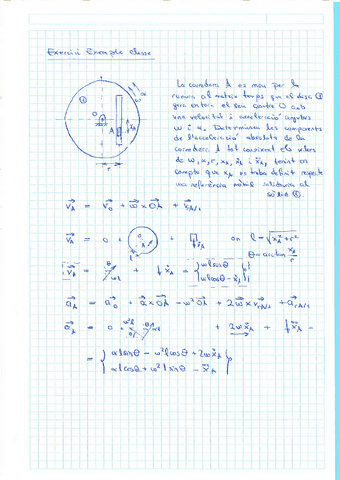 Exercici Exemple classe
La corredera A es mou per la
ranura al mateix temps que el disc ①
gira entorn el seu centre O amb
una velocitat i acceleració angulars
ω i α. Determineu les components
de l'acceleració absoluta de la
corredera A tot coneixent els valors
de ω, α, r, x_A, ẋ_A i ẍ_A, tenint en
compte que x_A es troba definit respecte
una referència mòbil solidària al
sòlid ①.
v_A = v_O + ω × OA + v_rA/1
v_A = 0 + + ẋ_A on l = √(x_A² + r²)
θ = arctan x_A/r
v_A = ωl + ẋ_A = { ωl sinθ
ωl cosθ - ẋ_A }
a_A = a_O + α × OA - ω² OA + 2ω × v_rA/1 + a_rA/1
a_A = 0 + ω²l αl + 2ωẋ_A + ẍ_A =
= { αl sinθ - ω²l cosθ + 2ωẋ_A
αl cosθ + ω²l sinθ - ẍ_A }